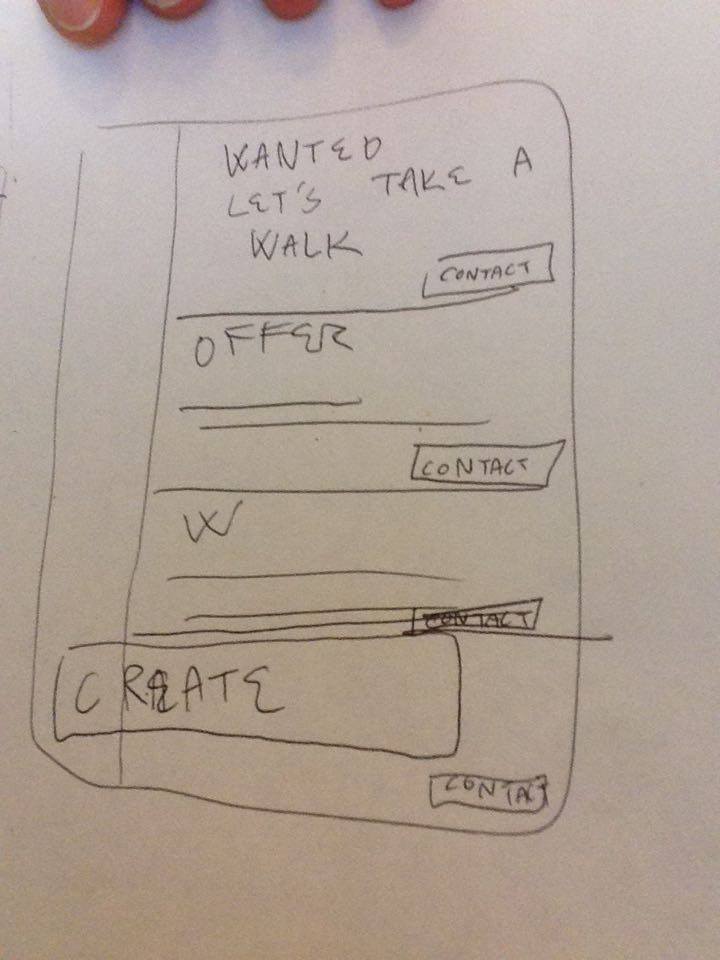 WANTED
LET'S TAKE A
WALK
CONTACT
OFFER
CONTACT
W
CONTACT
CREATE
CONTACT